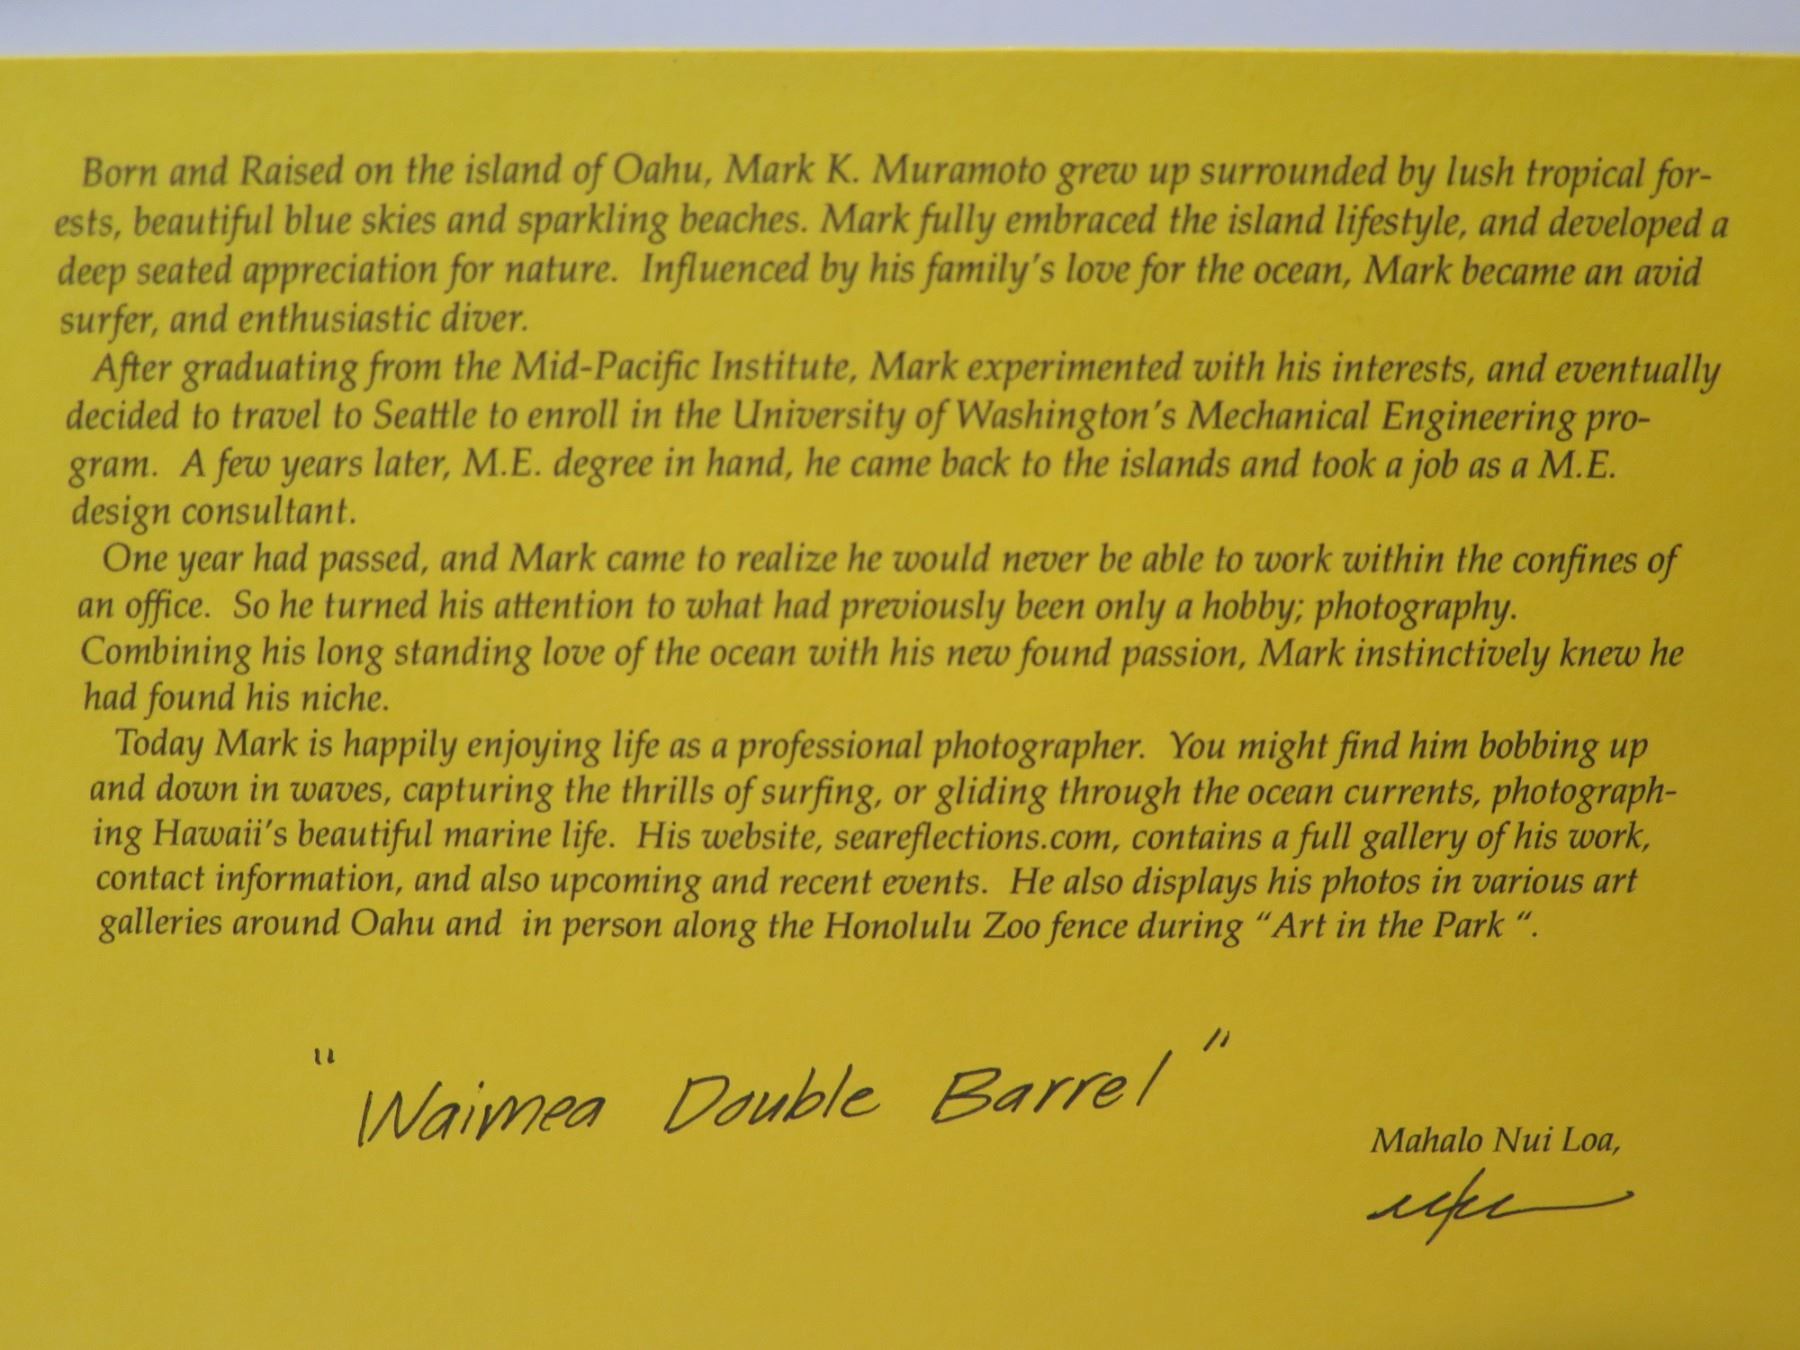 Born and Raised on the island of Oahu, Mark K. Muramoto grew up surrounded by lush tropical for-
ests, beautiful blue skies and sparkling beaches. Mark fully embraced the island lifestyle, and developed a
deep seated appreciation for nature.  Influenced by his family's love for the ocean, Mark became an avid
surfer, and enthusiastic diver.
After graduating from the Mid-Pacific Institute, Mark experimented with his interests, and eventually
decided to travel to Seattle to enroll in the University of Washington's Mechanical Engineering pro-
gram.  A few years later, M.E. degree in hand, he came back to the islands and took a job as a M.E.
design consultant.
One year had passed, and Mark came to realize he would never be able to work within the confines of
an office.  So he turned his attention to what had previously been only a hobby; photography.
Combining his long standing love of the ocean with his new found passion, Mark instinctively knew he
had found his niche.
Today Mark is happily enjoying life as a professional photographer.  You might find him bobbing up
and down in waves, capturing the thrills of surfing, or gliding through the ocean currents, photograph-
ing Hawaii's beautiful marine life.  His website, seareflections.com, contains a full gallery of his work,
contact information, and also upcoming and recent events.  He also displays his photos in various art
galleries around Oahu and  in person along the Honolulu Zoo fence during “Art in the Park “.
"Waimea Double Barrel"
Mahalo Nui Loa,